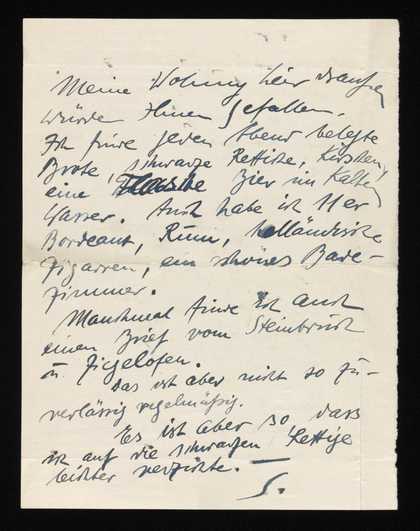 Meine Wohnung hier draußen
würde Ihnen gefallen.
Ich finde jeden Abend belegte
Brote, schwarze Rettiche, Kirschen,
eine Flasche Bier im kalten
Wasser. Auch habe ich 11er
Bordeaux, Rum, holländische
Zigarren, ein schönes Bade-
zimmer.
Manchmal finde ich auch
einen Brief vom Steinbruch
u Ziegelofen.
Das ist aber nicht so zu-
verlässig regelmäßig.
Es ist aber so, dass
ich auf die schwarzen Rettige
leichter verzichte. —
S.